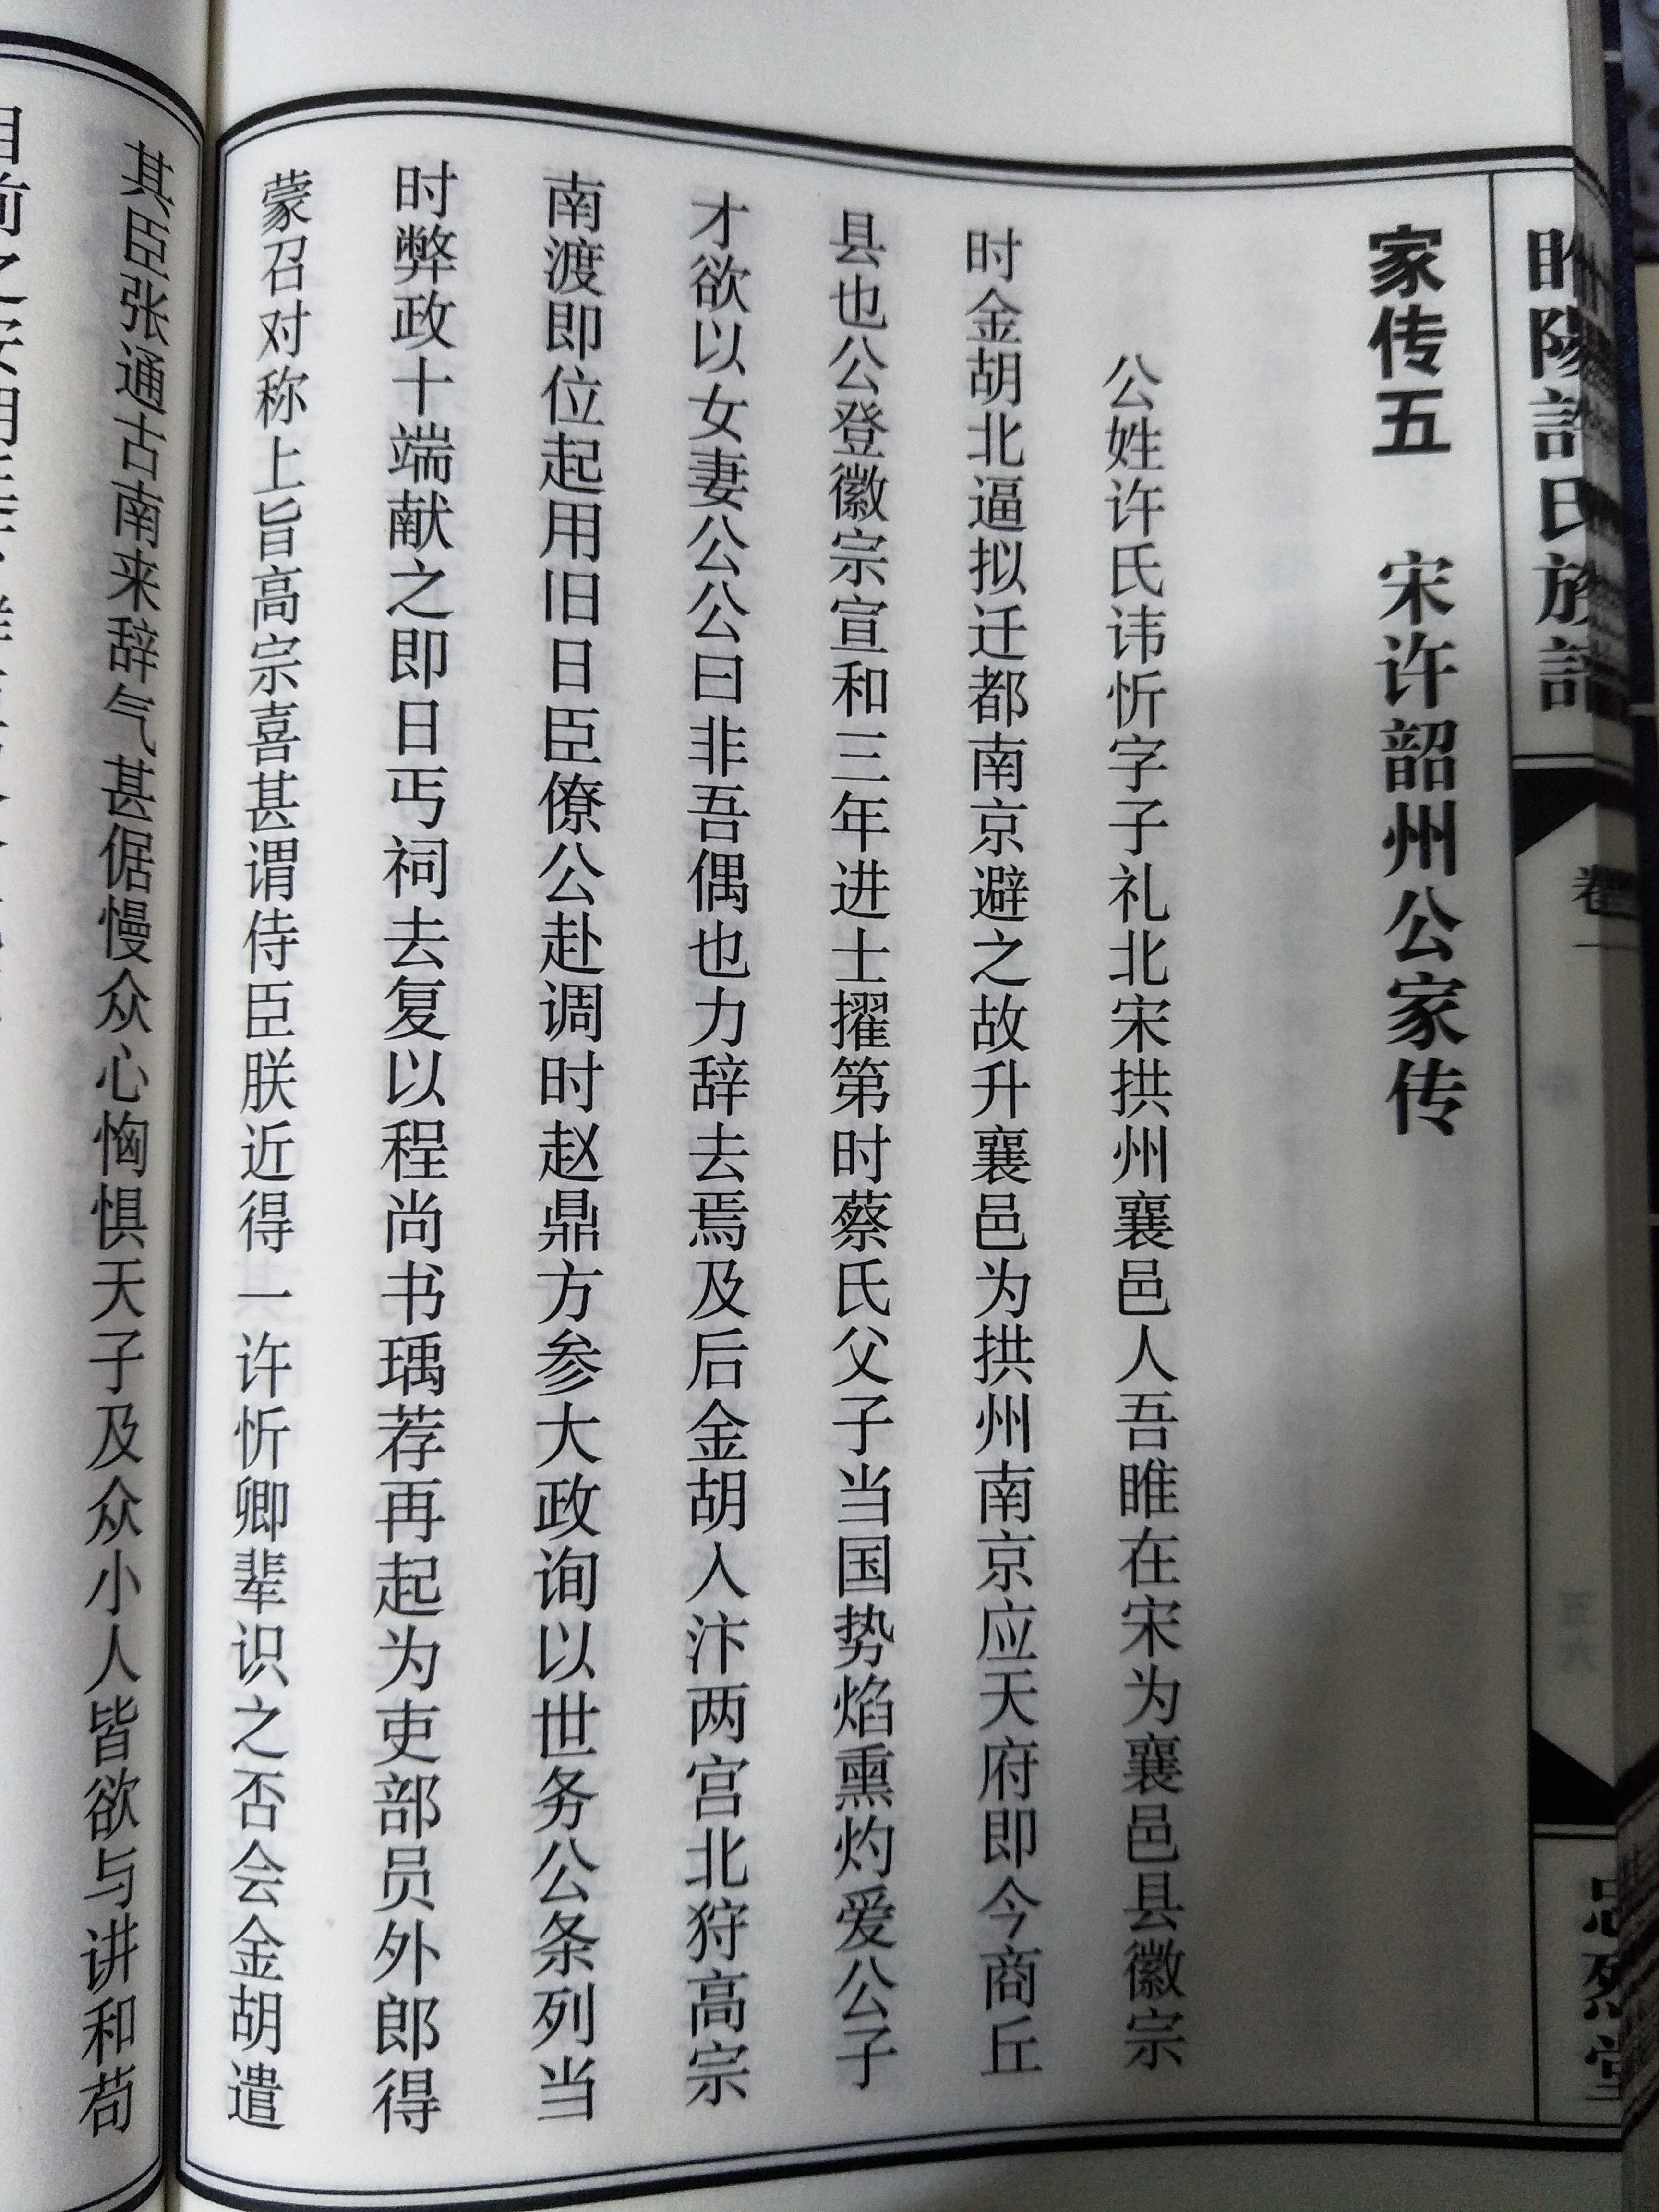 睢陽許氏族譜
卷一
忠烈堂
家传五 宋许韶州公家传
公姓许氏讳忻字子礼北宋拱州襄邑人吾睢在宋为襄邑县徽宗
时金胡北逼拟迁都南京避之故升襄邑为拱州南京应天府即今商丘
县也公登徽宗宣和三年进士擢第时蔡氏父子当国势焰熏灼爱公子
才欲以女妻公公曰非吾偶也力辞去焉及后金胡入汴两宫北狩高宗
南渡即位起用旧日臣僚公赴调时赵鼎方参大政询以世务公条列当
时弊政十端献之即日丐祠去复以程尚书瑀荐再起为吏部员外郎得
蒙召对称上旨高宗喜甚谓侍臣朕近得一许忻卿辈识之否会金胡遣
其臣张通古南来辞气甚倨慢众心恟惧天子及众小人皆欲与讲和苟
目前之安